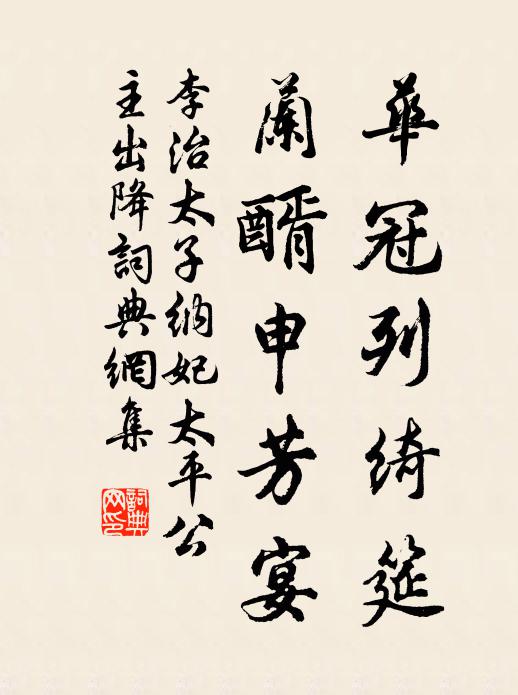 華冠列綺筵
蘭醑申芳宴
李治太子納妃太平公
主出降詞典網集
詞典
网印